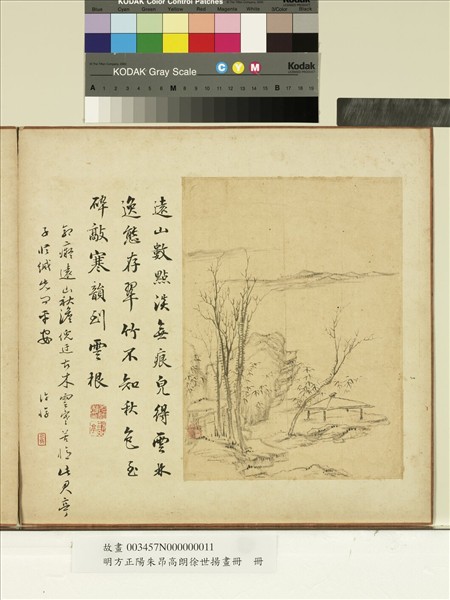 KODAK Color Control Patches
Blue Cyan Green Yellow Red Magenta White 3/Color Black
Kodak
KODAK Gray Scale
C Y M
Kodak
A 1 2 3 4 5 6 M 8 9 10 11 12 13 14 15 B 17 18 19
遠山數點淡無痕皃得雲林
逸態存翠竹不知秋色至
碎敲寒韻到雲根
癡遠山秋澹倪迂古木
平安
故畫 003457N000000011
明方正陽朱昂高朗徐世揚畫冊 冊